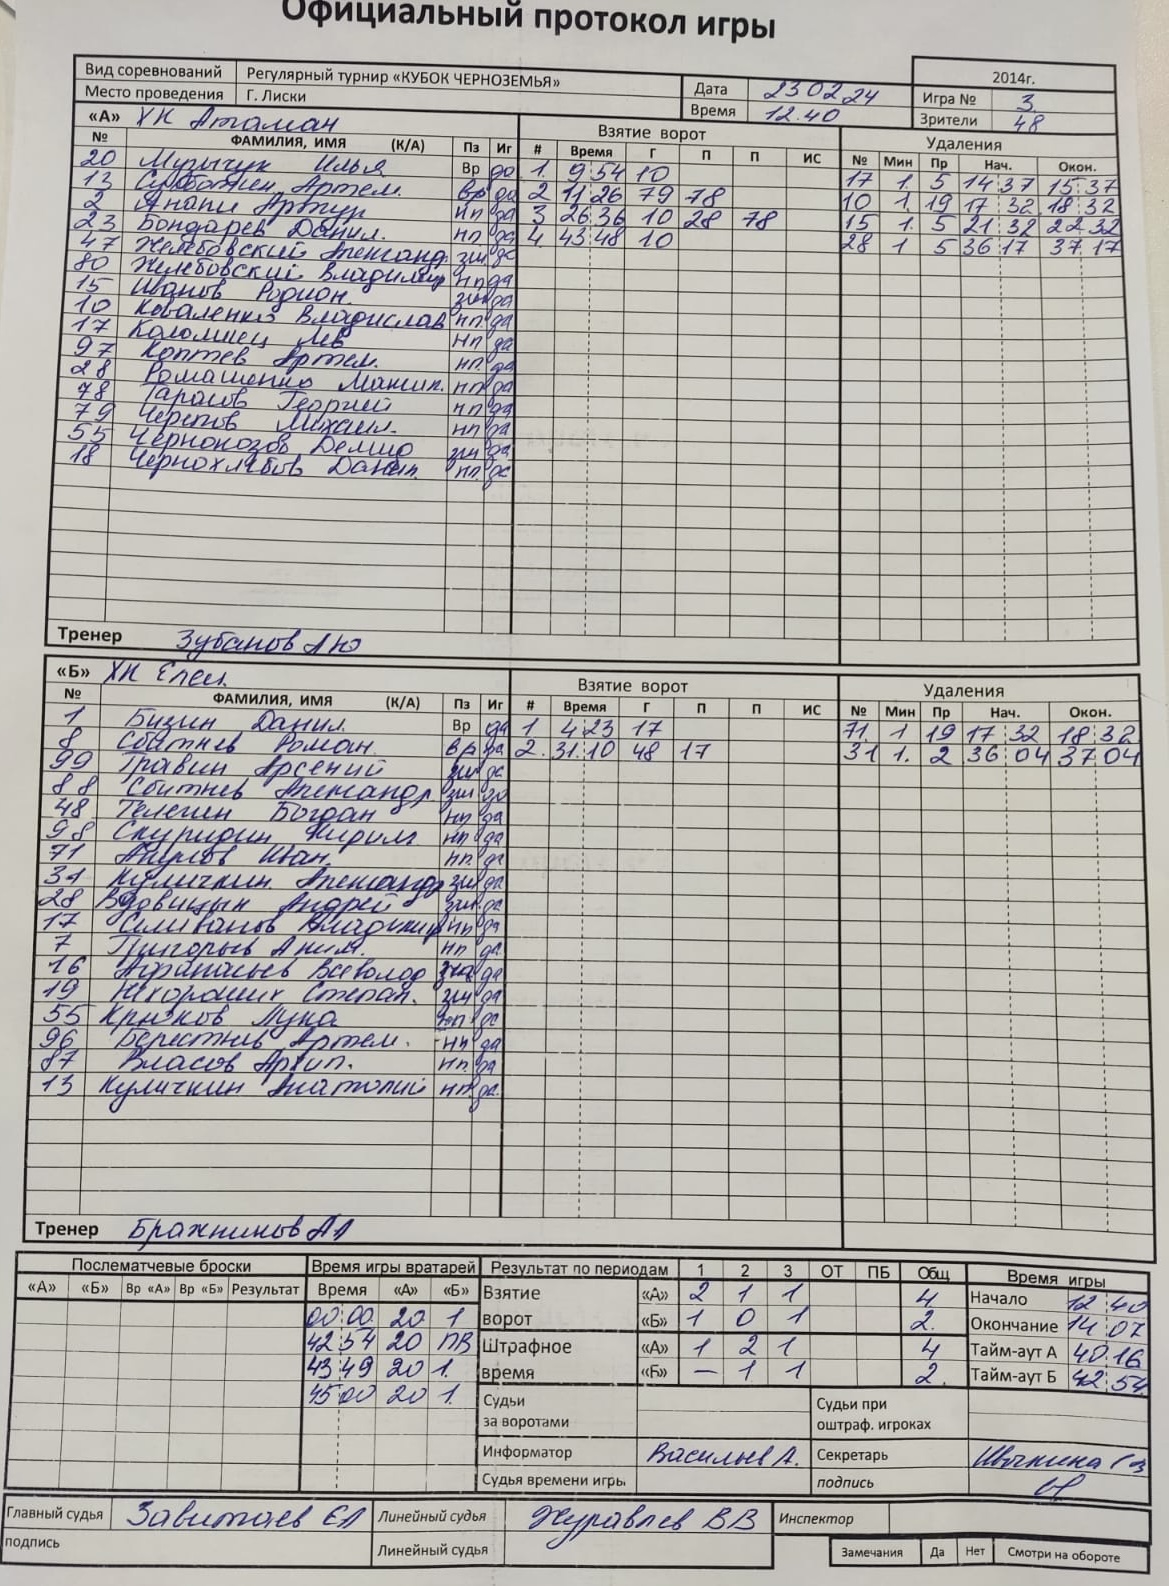 Официальный протокол игры
Вид соревнований Регулярный турнир «КУБОК ЧЕРНОЗЕМЬЯ» Дата 23 02 24 2014г.
Место проведения Г. Лиски Время 12.40 Игра № 3
Зрители 48
«А» ХК Атаман Взятие ворот Удаления
№ ФАМИЛИЯ, ИМЯ (К/А) Пз Иг # Время Г П П ИС № Мин Пр Нач. Окон.
20 Музычук Илья Вр да 1. 9 54 10 17 1. 5 14 37 15 37
13 Артем. Вр да 2 11 26 79 78 10 1 19 17 32 18 32
2 Нп да 3 26 36 10 28 78 15 1. 5 21 32 22 32
23 Бондарев Данил. нп да 4 43 48 10 28 1 5 36 17 37 17
47 Александр
80 Владимир нп да
15 Иванов Родион. да
10 Коваленко Владислав нп. да
17 Коломиец Лев нп да
97 Коптев Артем. нп. да
28 Ромащенко Максим. нп да
78 Тарасов Георгий нп да
79 Михаил. нп да
55 да
18 Чернохлебов нп. да
Тренер Зубанов А Ю
«Б» ХК Елец Взятие ворот Удаления
№ ФАМИЛИЯ, ИМЯ (К/А) Пз Иг # Время Г П П ИС № Мин Пр Нач. Окон.
1 Бузин Данил. Вр да 1 4 23 17 71. 1 19 17 32 18 32
8 Сбитнев Роман Вр да 2. 31 10 48 17 31 1. 2 36 04 37 04
99 Травин Арсений да
88 Сбитнев Александр
48 Телегин Богдан нп да
98 Спуридин Кирилл нп да
71 Иван. нп. да
31 Куличкин Александр да
28 Вдовицын Андрей да
17 Селиванов Владимир нп да
7 нп да
16 Афанасьев Всеволод да
19 Степан. да
55 Крюков Лука
96 Берестнев Артем. нп да
87 Власов Архип. нп. да
13 Куличкин Анатолий нп. да
Тренер Бражников А Л
Послематчевые броски Время игры вратарей Результат по периодам 1 2 3 ОТ ПБ Общ Время игры
«А» «Б» Вр «А» Вр «Б» Результат Время «А» «Б» Взятие «А» 2 1 1 4 Начало 12 40
00 00 20 1 ворот «Б» 1 0 1 2. Окончание 14 07
42 54 20 ПВ Штрафное «А» 1 2 1 4 Тайм-аут А 40 16
43 49 20 1. время «Б» – 1 1 2. Тайм-аут Б 42 54
45 00 20 1. Судьи за воротами Судьи при оштраф. игроках
Информатор Васильев А. Секретарь
Судья времени игры подпись
Главный судья Линейный судья Журавлев В В Инспектор
подпись Линейный судья Замечания Да Нет Смотри на обороте